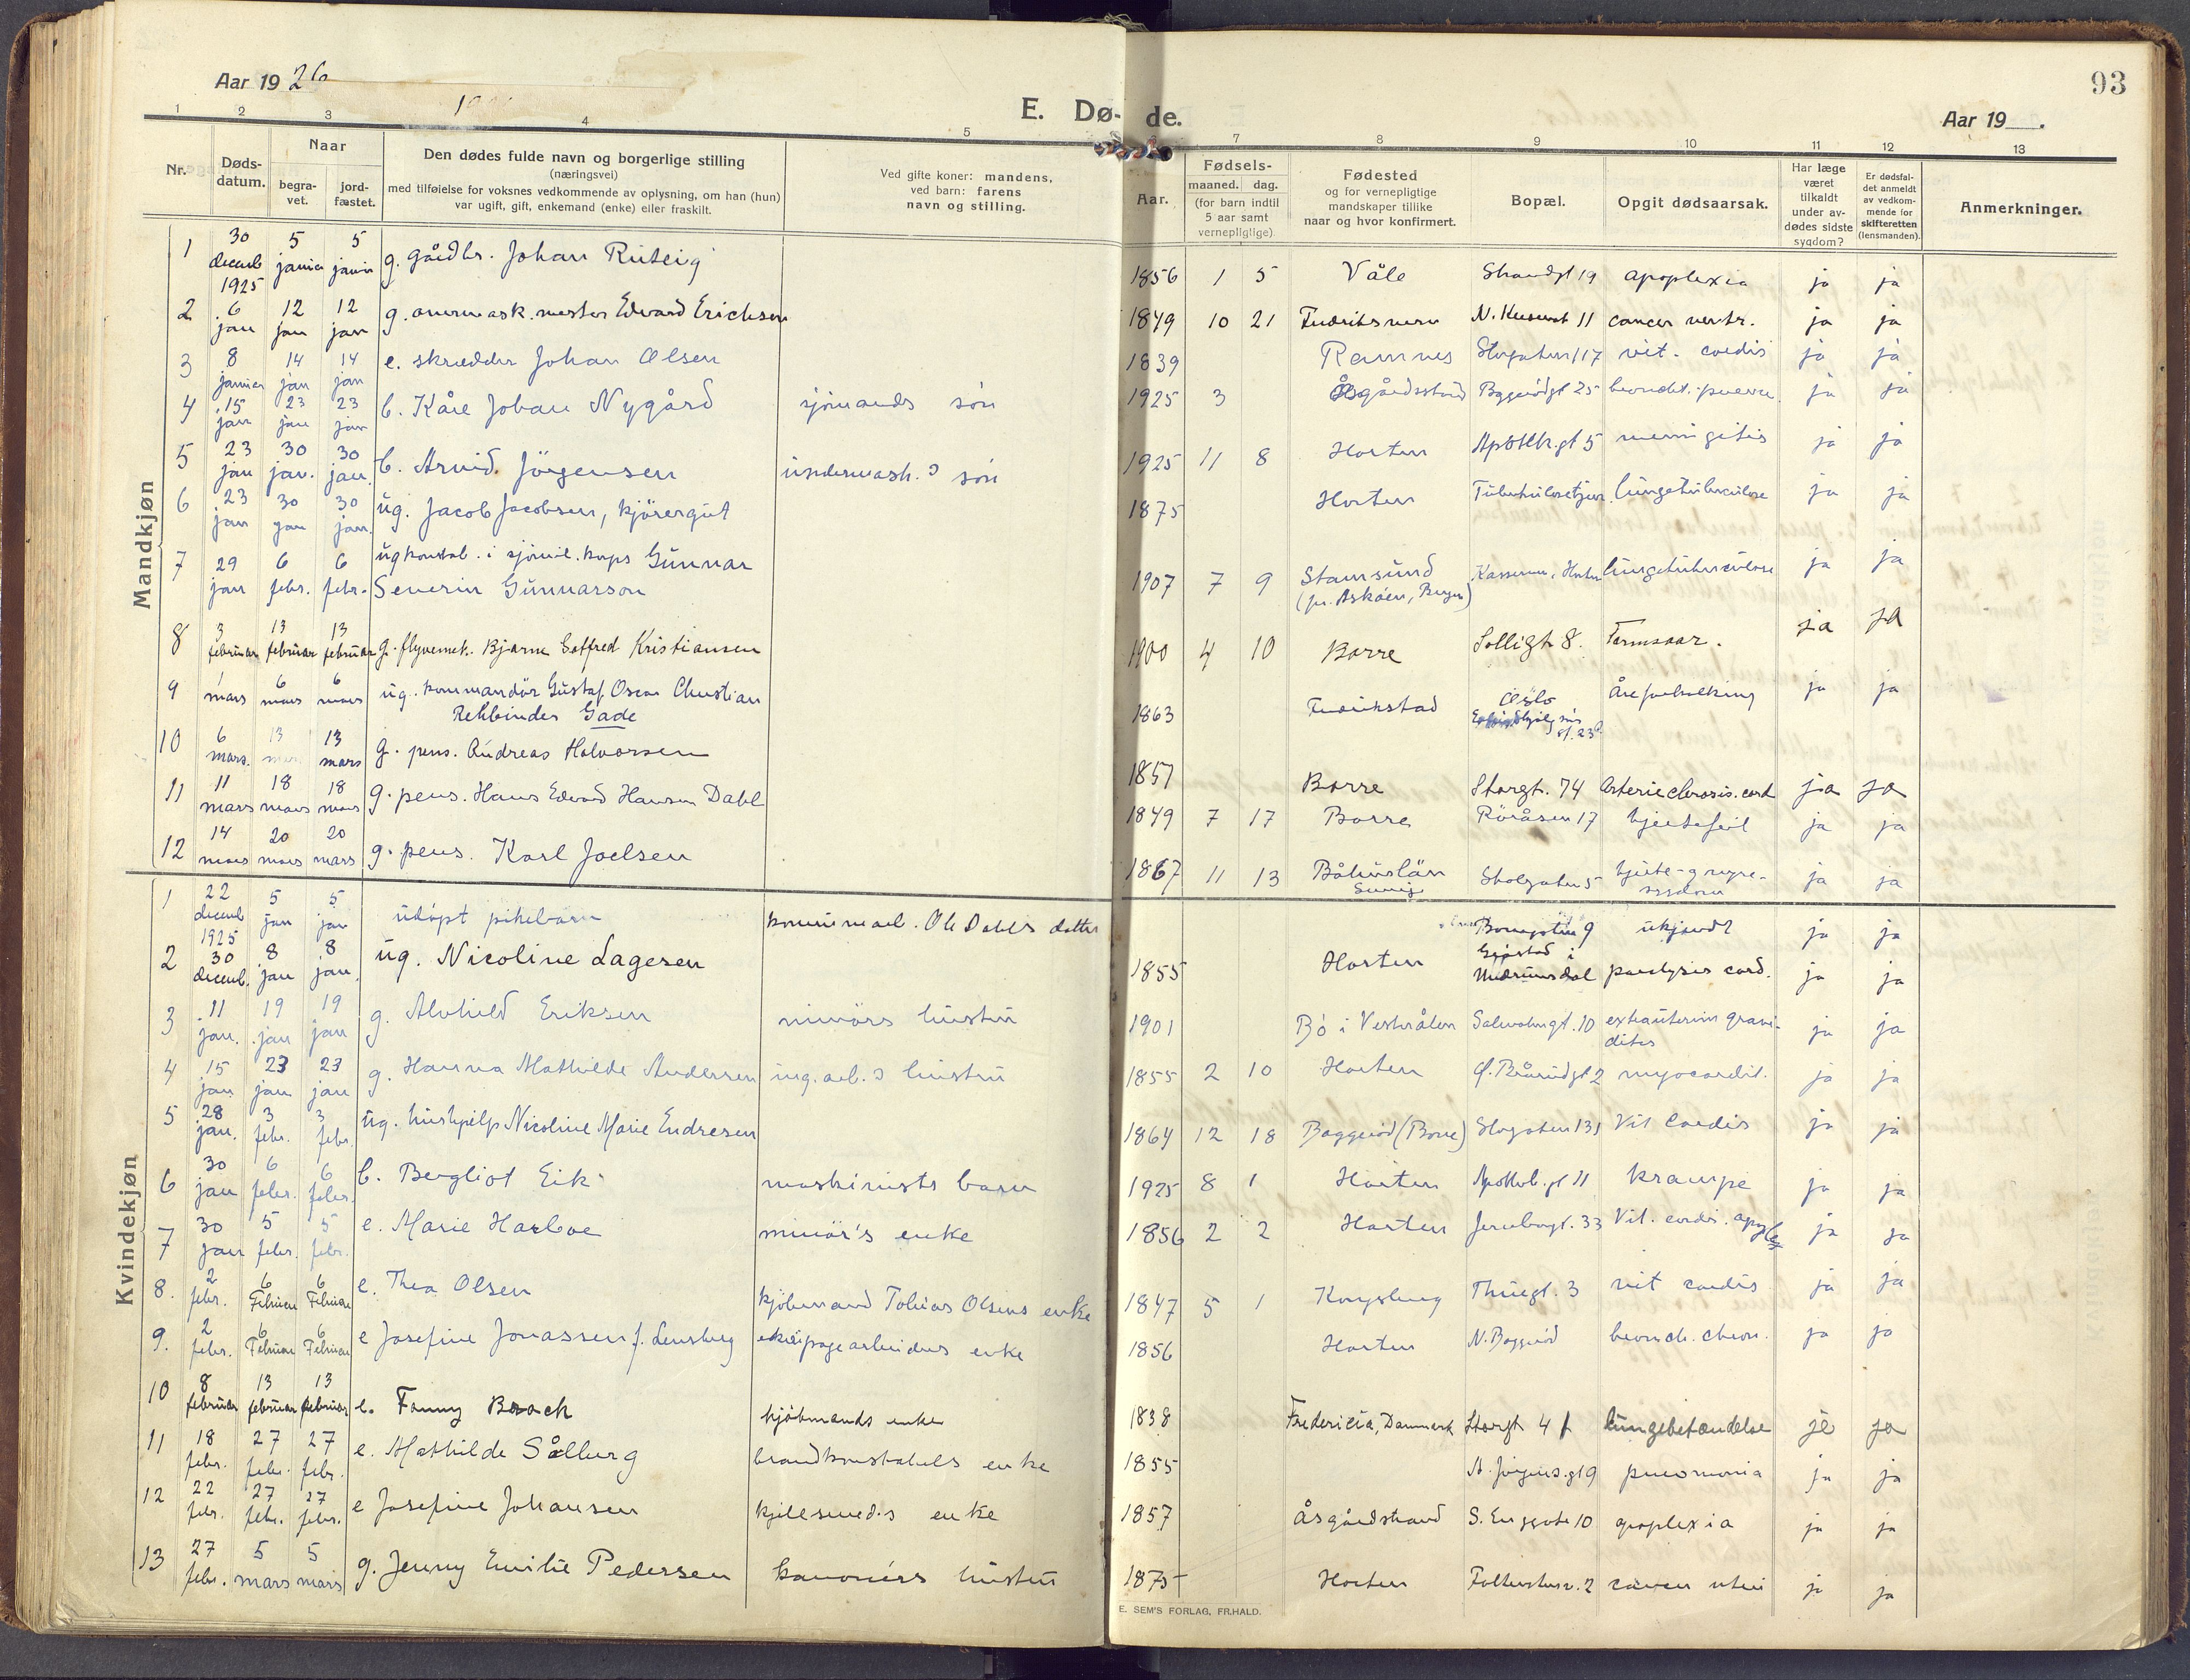 Aar 1926
E. Dø- de.
Aar 19__.
93
1 2 3 4 5 7 8 9 10 11 12 13
Nr.
Døds-
datum.
Naar
begra-
vet.
jord-
fæstet.
Den dødes fulde navn og borgerlige stilling
(næringsvei)
med tilføielse for voksnes vedkommende av oplysning, om han (hun)
var ugift, gift, enkemand (enke) eller fraskilt.
Ved gifte koner: mandens,
ved barn: farens
navn og stilling.
Aar.
Fødsels-
maaned. dag.
(for barn indtil
5 aar samt
vernepligtige)
Fødested
og for vernepligtige
mandskaper tillike
naar og hvor konfirmert.
Bopæl.
Opgit dødsaarsak.
Har læge
været
tilkaldt
under av-
dødes sidste
sygdom?
Er dødsfal-
det anmeldt
av vedkom-
mende for
skifteretten
(lensmanden).
Anmerkninger.
Mandkjøn
1 30 decemb 1925 5 januar 5 januar g. gårdbr. Johan 1856 1 5 Våle Strandgt 19 apoplexia ja ja
2 6 jan 12 jan 12 jan g. overmask.mester Edvard Erichsen 1849 10 21 Fredriksvern 11 cancer ventr. ja ja
3 8 januar 14 jan 14 jan e. skrædder Johan Olsen 1839 Ramnes Storgaten 117 vit. cordis ja ja
4 15 jan 23 jan 23 jan b. Kåre Johan Nygård sjömands sön 1925 3 Åsgårdsstrand Baggerödgt 25 ja ja
5 23 jan 30 jan. 30 jan. b. Arvid Jörgensen undermask.s sön 1925 11 8 Horten Apothk.gt 5 meningitis ja ja
6 23 jan 30 jan 30 jan. ug. Jacob Jacobsen, kjöregut 1875 Horten lungetuberculose ja ja
7 29 jan 6 febr. 6 febr. ug konstab. i sjömil. korps Gunnar
Severin Gunnarson 1907 7 9 Stamsund
(pr. Askøen, Bergen) Kasernen, Horten lungetuberculose ja ja
8 3 februar 13 februar 13 februar g. flyvemek. Bjarne Gotfred Kristiansen 1900 4 10 Borre Solligt 8. Tarmsaar. ja ja
9 1 mars 6 mars 6 mars ug. kommandör Gustaf Oscar Christian
Rehbinder Gade 1863 Fredrikstad Oslo gt. 23 Åreforkalkning ja ja
10 6 mars. 13 13 mars g. pens. Andreas Halvorsen 1857 Borre Storgt. 74 Arterieclerosis. cord ja ja
11 11 mars 18 mars 18 mars g. pens. Hans Edvard Hansen Dahl 1849 7 17 Borre Röråsen 17 hjertefeil ja ja
12 14 mars 20 mars 20 mars g. pens. Karl Joelsen 1867 11 13 Båhuslän
Sverige Skolgaten 5 hjerte- og nyre-
sygdom ja ja
Kvindekjøn
1 22 decemb 1925 5 jan 5 jan udöpt pikebarn kommunearb. Ole Dahls datter 9 ukjendt ja ja
2 30 decemb. 8 jan 8 jan. ug. Nicoline Lagesen 1855 Horten i Undrumsdal paralysis cord. ja ja
3 11 jan. 19 jan 19 jan g. Alvhild Eriksen minörs hustru 1901 Bö i Vesterålen 10 extrauterin gravi-
ditas ja ja
4 15 jan 23 jan 23 jan g. Hanna Mathilde Andersen ing.arb.s hustru 1855 2 10 Horten 2 myocardit. ja ja
5 28 jan. 3 febr. 3 febr. ug. hushjelp Nicoline Marie Endresen 1864 12 18 Baggeröd (Borre) Storgaten 131 Vit cordis ja ja
6 30 jan 6 febr. 6 febr. b. Bergliot Eik maskinists barn 1925 8 1 Horten Apothk.gt 11 krampe ja ja
7 30 jan 5 febr. 5 febr. e. Marie Harboe minör's enke 1856 2 2 Horten Jernbangt. 33 Vit. cordis. ja ja
8. 2 febr. 6 Februar 6 Februar e. Thea Olsen kjöbmand Tobias Olsens enke 1847 5 1 Kongsberg Thuegt. 3 vit cordis ja ja
9. 2 febr. 6 Februar 6 Februar e Josefine Jonassen f. Lensberg ekvipagearbeiders enke 1856 Horten N. Baggeröd bronch. chron. ja ja
10 8 februar 13 februar 13 februar e. Fanny Broch kjöbmands enke 1838 Fredericia, Danmark Storgt 41 lungebetændelse ja ja
11 18 febr. 27 febr. 27 febr. e. Mathilde Solberg brandkonstabels enke 1855 A. Jörgens.gt 9 pneomonia ja ja
12 22 febr. 27 febr. 27 febr. e Josefine Johansen kjelesmed.s enke 1857 Åsgårdstrand S. Enggate 10 apoplexia ja ja
13 27 febr. 5 mars 5 mars g. Jenny Emilie Pedersen kanonérs hustru 1875 Horten 2 cancer uteri ja ja
E. SEM'S FORLAG, FR.HALD.